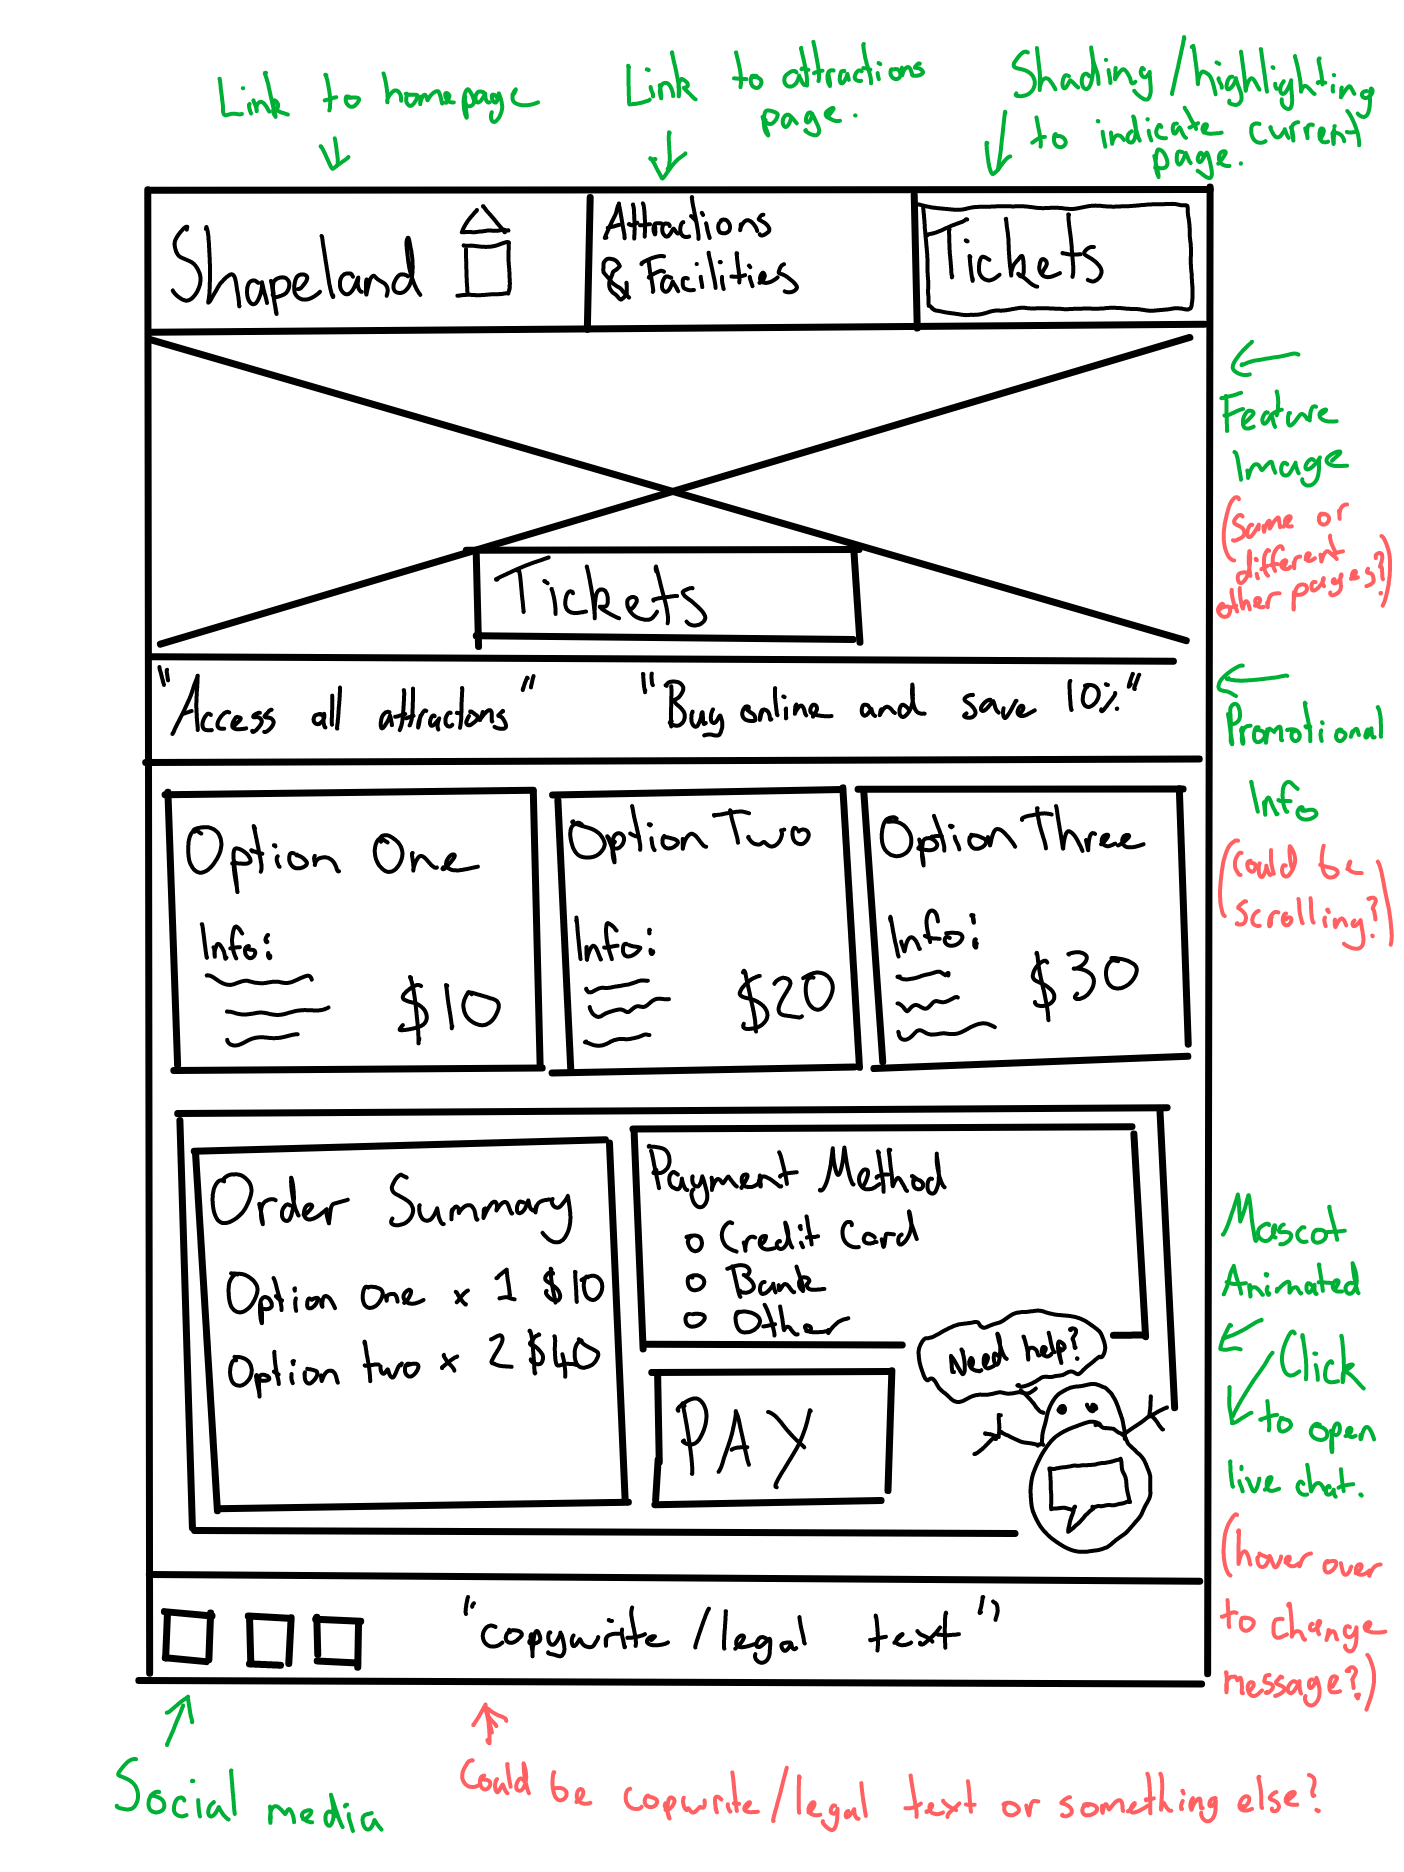 Link to homepage
Link to attractions
page.
Shading/highlighting
to indicate current
page.
Shapeland
Attractions
& Facilities
Tickets
Feature
Image
(same or
different
other pages?)
Tickets
"Access all attractons"
"Buy online and save 10%"
Promotional
Info
(could be
scrolling?)
Option One
Info:
$10
Option Two
Info:
$20
Option Three
Info:
$30
Order Summary
Option one x 1 $10
Option two x 2 $40
Payment Method
Credit Card
Bank
Other
Need help?
PAY
Mascot
Animated
Click
to open
live chat.
(hover over
to change
message?)
"copywrite/legal text"
Social media
Could be copwrite/legal text or something else?